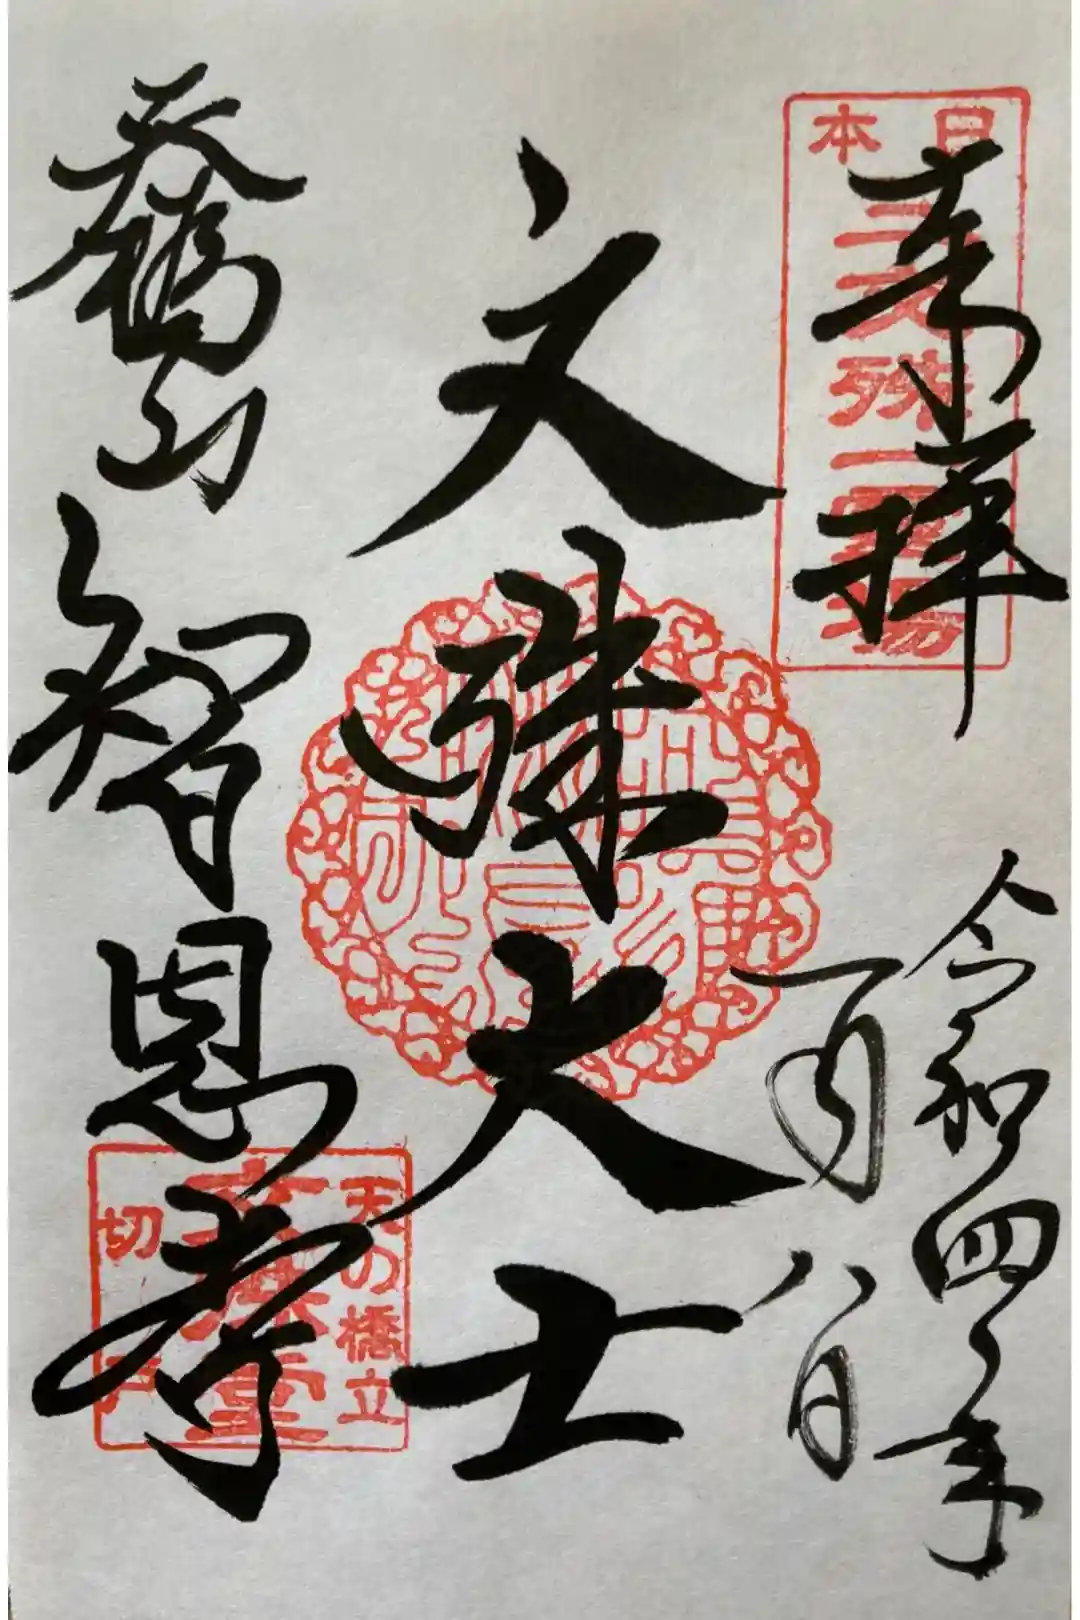 奉拝
日本三文殊一霊場
令和四年
一月八日
文殊大士
天橋山
智恩寺
天の橋立
文殊堂
切戸